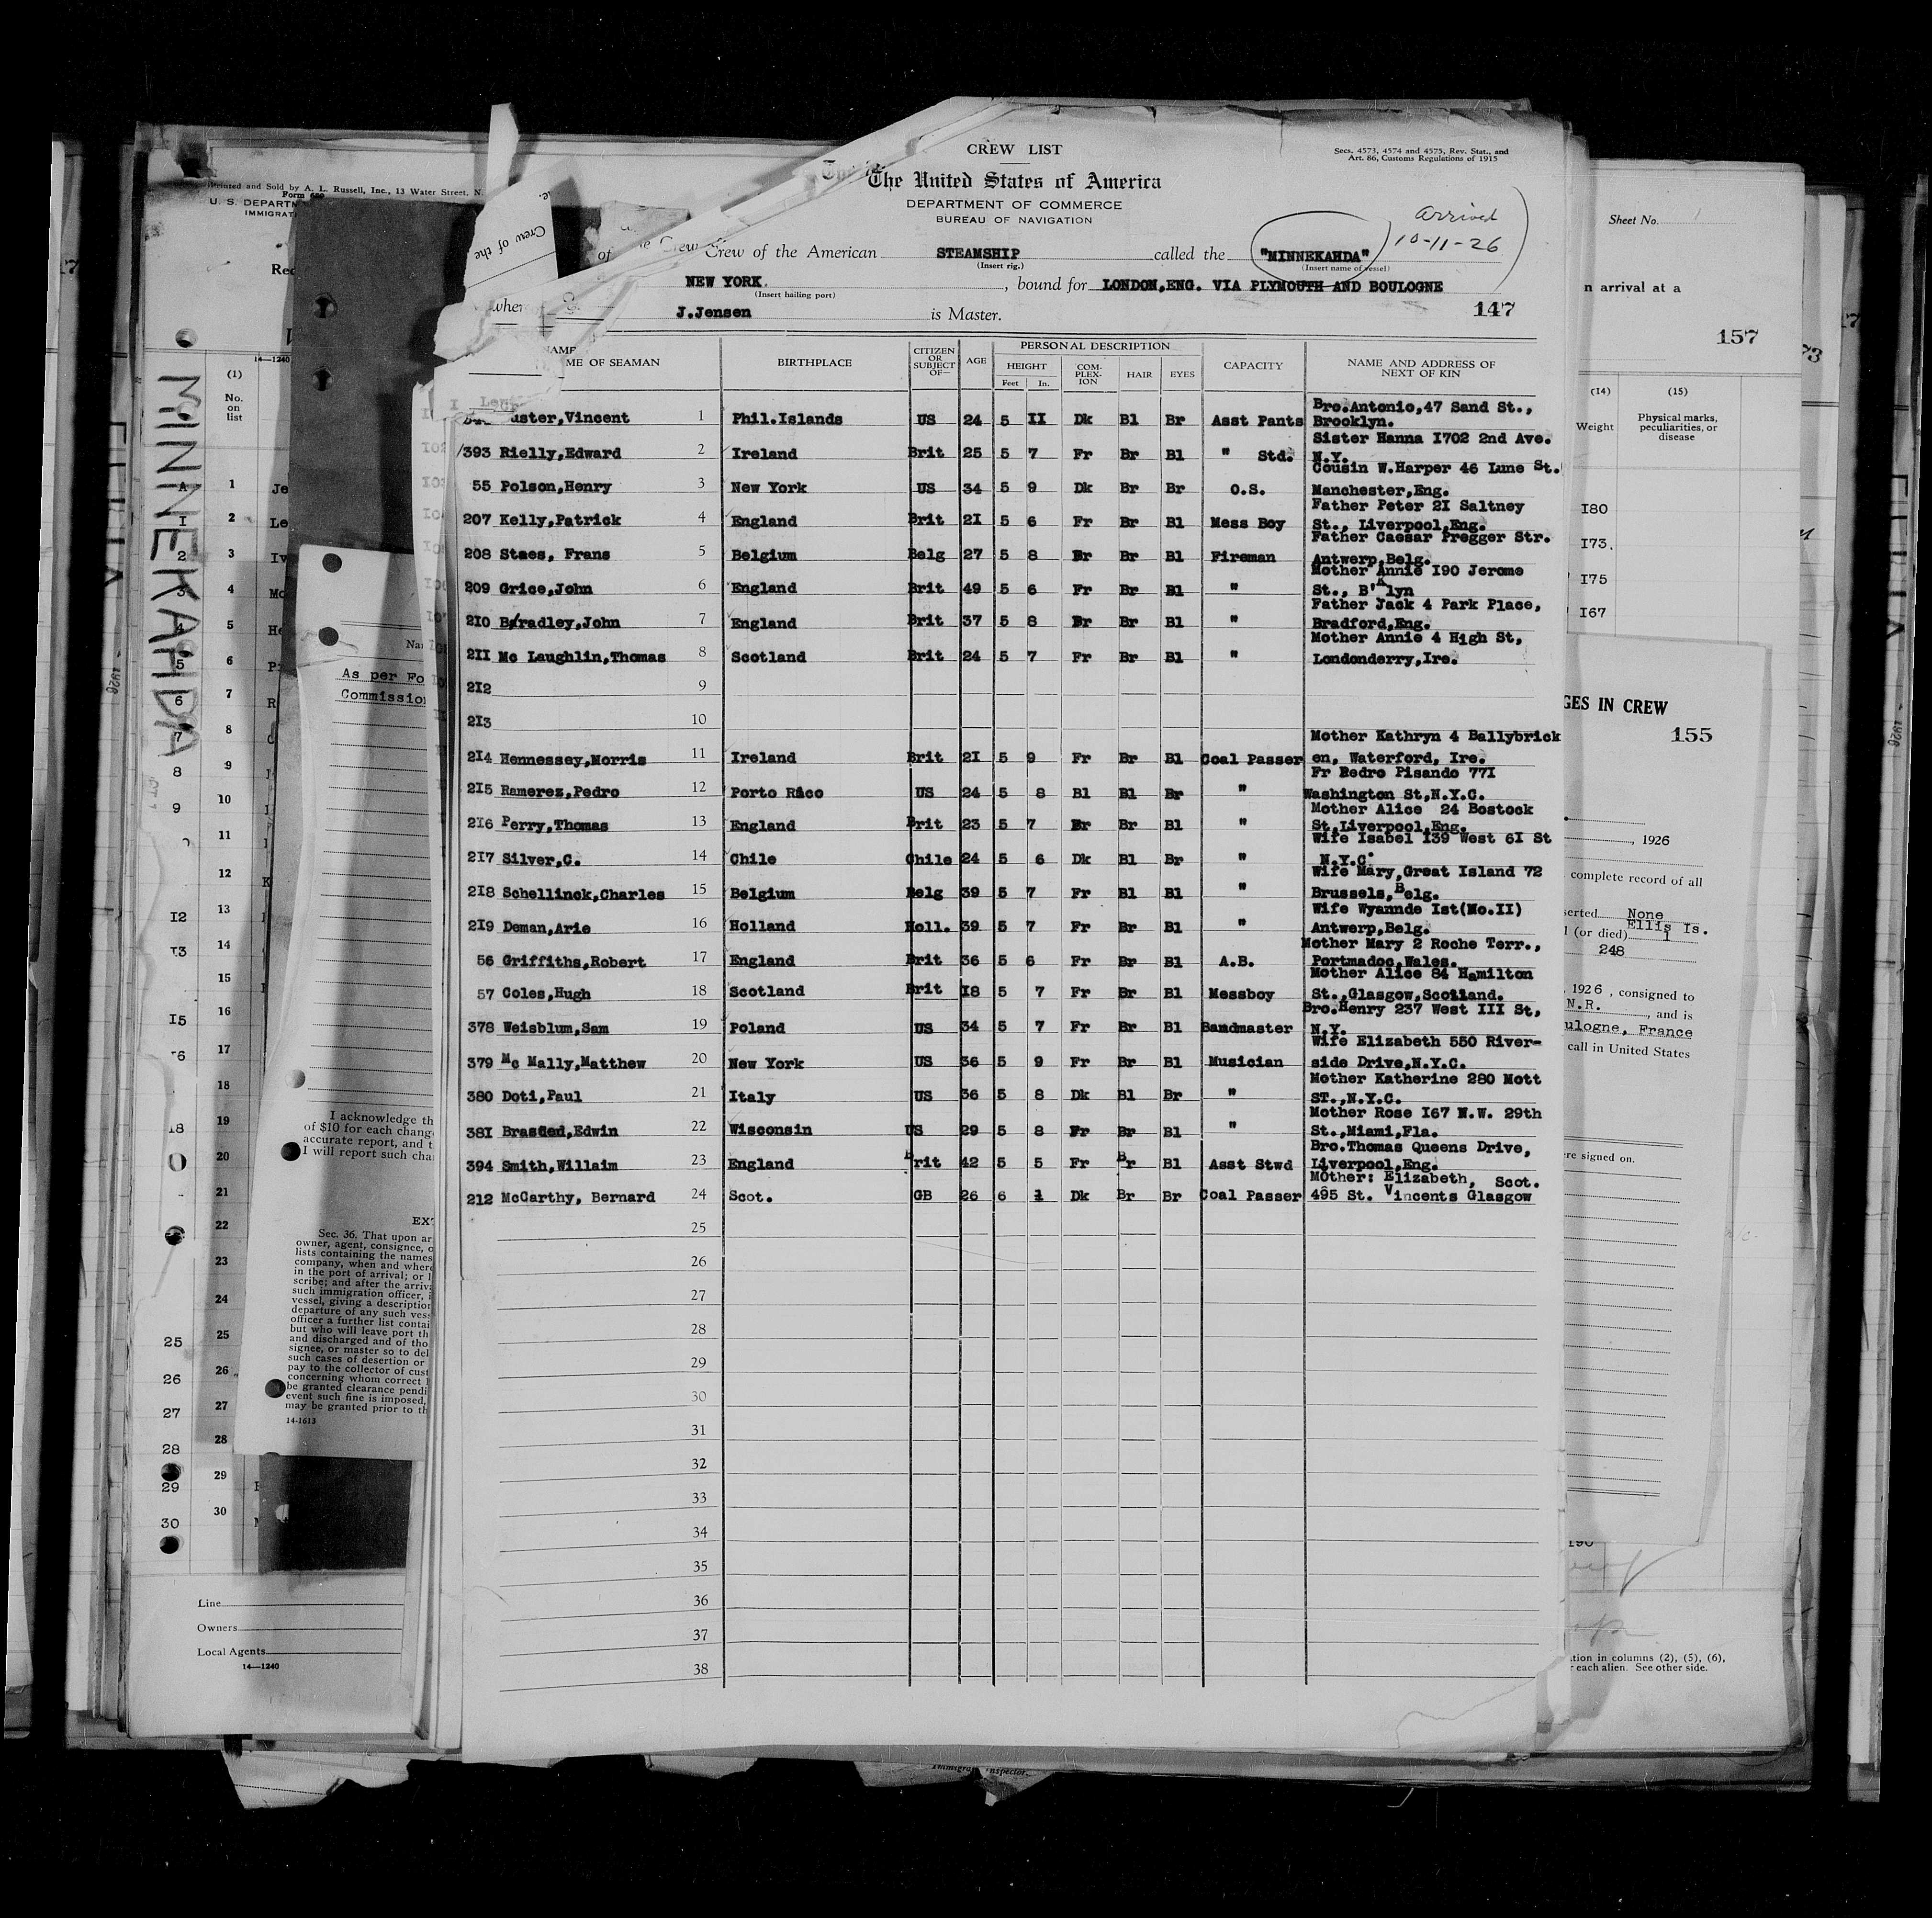 CREW LIST
Secs. 4573, 4574 and 4575, Rev. Stat., and
Art. 86, Customs Regulations of 1915
The United States of America
DEPARTMENT OF COMMERCE
BUREAU OF NAVIGATION
arrived
10-11-26
Crew of the American STEAMSHIP called the "MINNEKAHDA"
(Insert rig.) (Insert name of vessel)
NEW YORK. , bound for LONDON,ENG. VIA PLYMOUTH AND BOULOGNE
(Insert hailing port)
J.Jensen is Master. 147
ME OF SEAMAN BIRTHPLACE CITIZEN OR SUBJECT OF— AGE PERSONAL DESCRIPTION CAPACITY NAME AND ADDRESS OF NEXT OF KIN
HEIGHT COM-PLEX-ION HAIR EYES
Feet In.
Bro.Antonio,47 Sand St.,
uster,Vincent 1 Phil.Islands US 24 5 II Dk Bl Br Asst Pants Brooklyn.
Sister Hanna I702 2nd Ave.
393 Rielly,Edward 2 Ireland Brit 25 5 7 Fr Br Bl " Std. N.Y.
Cousin W.Harper 46 Lune St.
55 Polson,Henry 3 New York US 34 5 9 Dk Br Br O.S. Manchester,Eng.
Father Peter 2I Saltney
207 Kelly,Patrick 4 England Brit 2I 5 6 Fr Br Bl Mess Boy St., Liverpool,Eng.
Father Caesar Pregger Str.
208 Staes, Frans 5 Belgium Belg 27 5 8 Br Br Bl Fireman Antwerp,Belg.
Mother Annie I90 Jerome
209 Grice,John 6 England Brit 49 5 6 Fr Br Bl " St., B'klyn
Father Jack 4 Park Place,
2I0 Bradley,John 7 England Brit 37 5 8 Br Br Bl " Bradford,Eng.
Mother Annie 4 High St,
2II Mc Laughlin,Thomas 8 Scotland Brit 24 5 7 Fr Br Bl " Londonderry,Ire.
2I2 9
2I3 10
Mother Kathryn 4 Ballybrick
2I4 Hennessey,Morris 11 Ireland Brit 2I 5 9 Fr Br Bl Coal Passer en, Waterford, Ire.
Fr Pedro Pisando 77I
2I5 Ramerez,Pedro 12 Porto Rico US 24 5 8 Bl Bl Br " Washington St,N.Y.C.
Mother Alice 24 Bostock
2I6 Perry,Thomas 13 England Brit 23 5 7 Br Br Bl " St,Liverpool,Eng.
Wife Isabel I39 West 6I St
2I7 Silver,C. 14 Chile Chile 24 5 6 Dk Bl Br " N.Y.C.
Wife Mary,Great Island 72
2I8 Schellinck,Charles 15 Belgium Belg 39 5 7 Fr Bl Bl " Brussels,Belg.
Wife Wyannde Ist(No.II)
2I9 Deman,Arie 16 Holland Holl. 39 5 7 Fr Br Bl " Antwerp,Belg.
Mother Mary 2 Roche Terr.,
56 Griffiths,Robert 17 England Brit 36 5 6 Fr Br Bl A.B. Portmadoc,Wales.
Mother Alice 84 Hamilton
57 Coles,Hugh 18 Scotland Brit I8 5 7 Fr Br Bl Messboy St.,Glasgow,Scotland.
Bro.Henry 237 West III St,
378 Weisblum,Sam 19 Poland US 34 5 7 Fr Br Bl Bandmaster N.Y.
Wife Elizabeth 550 River-
379 Mc Mally,Matthew 20 New York US 36 5 9 Fr Br Bl Musician side Drive,N.Y.C.
Mother Katherine 280 Mott
380 Doti,Paul 21 Italy US 36 5 8 Dk Bl Br " ST.,N.Y.C.
Mother Rose I67 N.W. 29th
38I Edwin 22 Wisconsin US 29 5 8 Fr Br Bl " St.,Miami,Fla.
Bro.Thomas Queens Drive,
394 Smith,Willaim 23 England Brit 42 5 5 Fr Br Bl Asst Stwd Liverpool,Eng.
Mother: Elizabeth, Scot.
212 McCarthy, Bernard 24 Scot. GB 26 6 1 Dk Br Br Coal Passer 495 St. Vincents Glasgow
25
26
27
28
29
30
31
32
33
34
35
36
37
38
Printed and Sold by A. L. Russell, Inc., 13 Water Street, N.
U. S. DEPARTM
IMMIGRAT
14—1240
(1)
No. on list
MINNEKAHDA
As per Fo
Commission
I acknowledge th
of $10 for each chang
accurate report, and t
I will report such cha
Sec. 36. That upon ar
owner, agent, consignee, o
lists containing the names
company, when and where
in the port of arrival; or
scribe; and after the arriv
such immigration officer, i
vessel, giving a description
departure of any such vess
officer a further list contai
but who will leave port th
and discharged and of tho
signee, or master so to del
such cases of desertion or
pay to the collector of cust
concerning whom correct
be granted clearance pendi
event such fine is imposed,
may be granted prior to th
14-1613
Line
Owners
Local Agents
14—1240
Sheet No.
n arrival at a
157
(14) (15)
Weight Physical marks, peculiarities, or disease
I80
I73.
I75
I67
GES IN CREW
155
, 1926
complete record of all
serted None
Ellis Is.
l (or died) 1
248
1926 , consigned to
N.R. , and is
ulogne, France
call in United States
re signed on.
tion in columns (2), (5), (6),
r each alien. See other side.